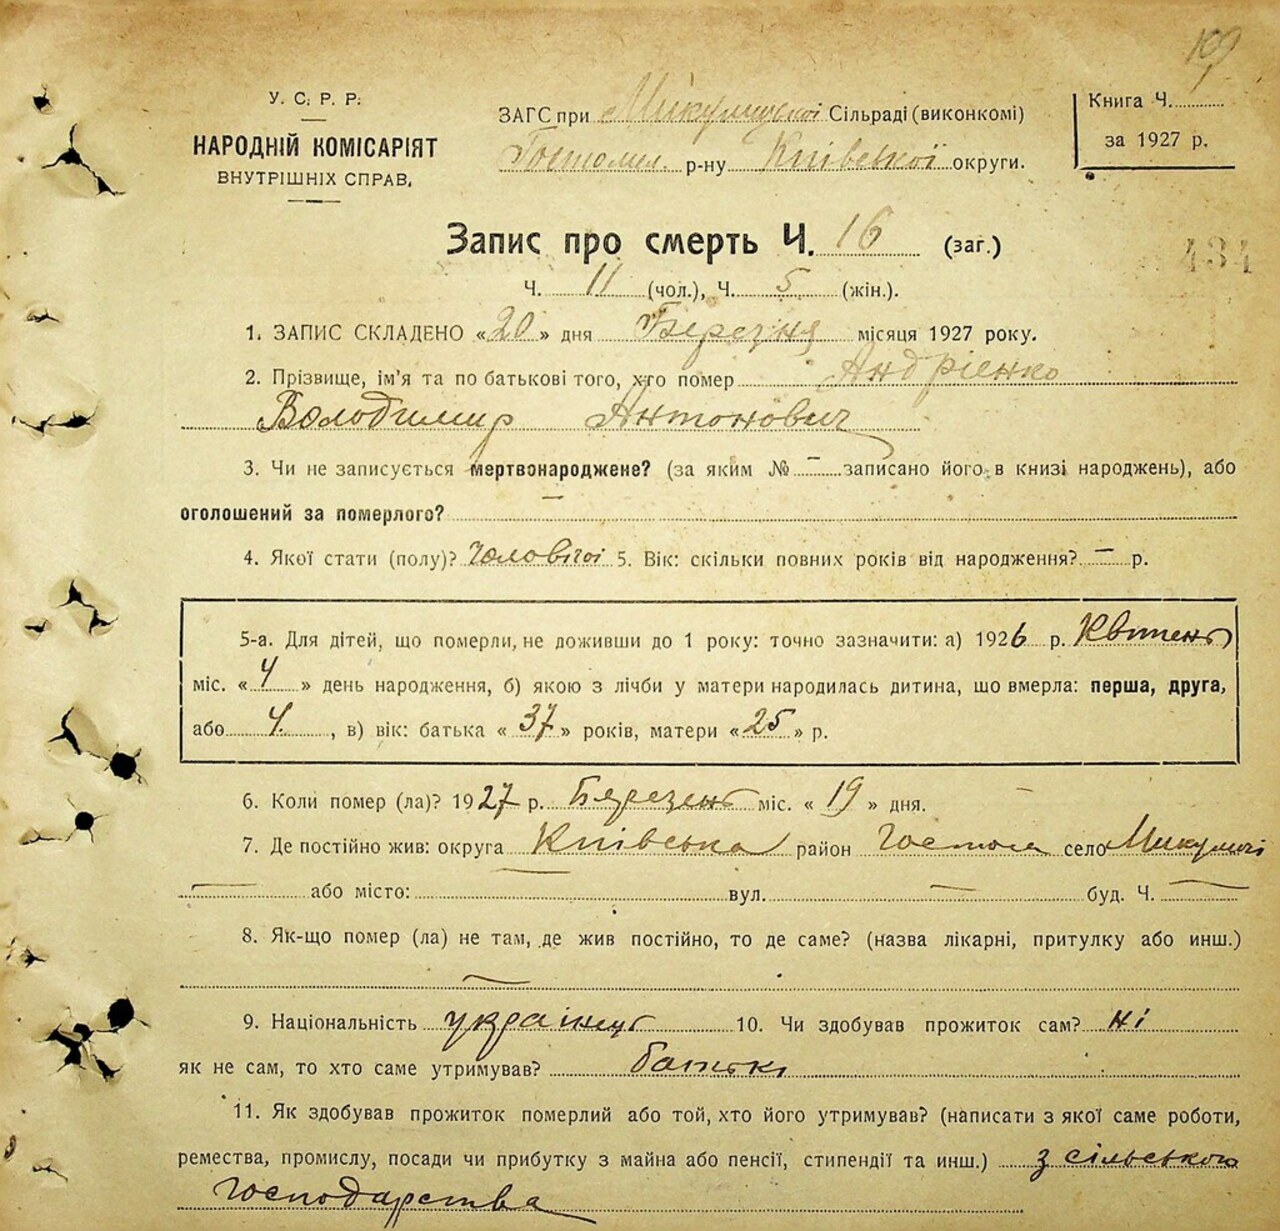 109
У. С. Р. Р.
НАРОДНІЙ КОМІСАРІЯТ
ВНУТРІШНІХ СПРАВ.
ЗАГС при Микулицької Сільраді (виконкомі)
Гостомел. р-ну Київської округи.
Книга Ч.
за 1927 р.
Запис про смерть Ч. 16 (заг.)
434
Ч. 11 (чол.), Ч. 5 (жін.).
1. ЗАПИС СКЛАДЕНО «20» дня Березня місяця 1927 року.
2. Прізвище, ім'я та по батькові того, хто помер Андрієнко
Володимир Антонович
3. Чи не записується мертвонароджене? (за яким № — записано його в книзі народжень), або
оголошений за померлого? —
4. Якої стати (полу)? Чоловічої 5. Вік: скільки повних років від народження? — р.
5-а. Для дітей, що померли, не доживши до 1 року: точно зазначити: а) 1926 р. Квітень
міс. «4» день народження, б) якою з лічби у матери народилась дитина, що вмерла: перша, друга,
або 4. , в) вік: батька «37» років, матери «25» р.
6. Коли помер (ла)? 1927 р. Березень міс. «19» дня.
7. Де постійно жив: округа Київська район Гостом село Микуличі
— або місто: — вул. — буд. Ч. —
8. Як-що помер (ла) не там, де жив постійно, то де саме? (назва лікарні, притулку або инш.)
—
9. Національність українець 10. Чи здобував прожиток сам? ні
як не сам, то хто саме утримував? батьки
11. Як здобував прожиток померлий або той, хто його утримував? (написати з якої саме роботи,
ремества, промислу, посади чи прибутку з майна або пенсії, стипендії та инш.) з сільського
господарства